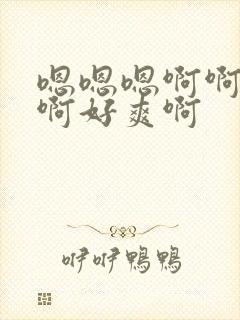 嗯嗯嗯啊啊
啊好爽啊
咿咿鸭鸭